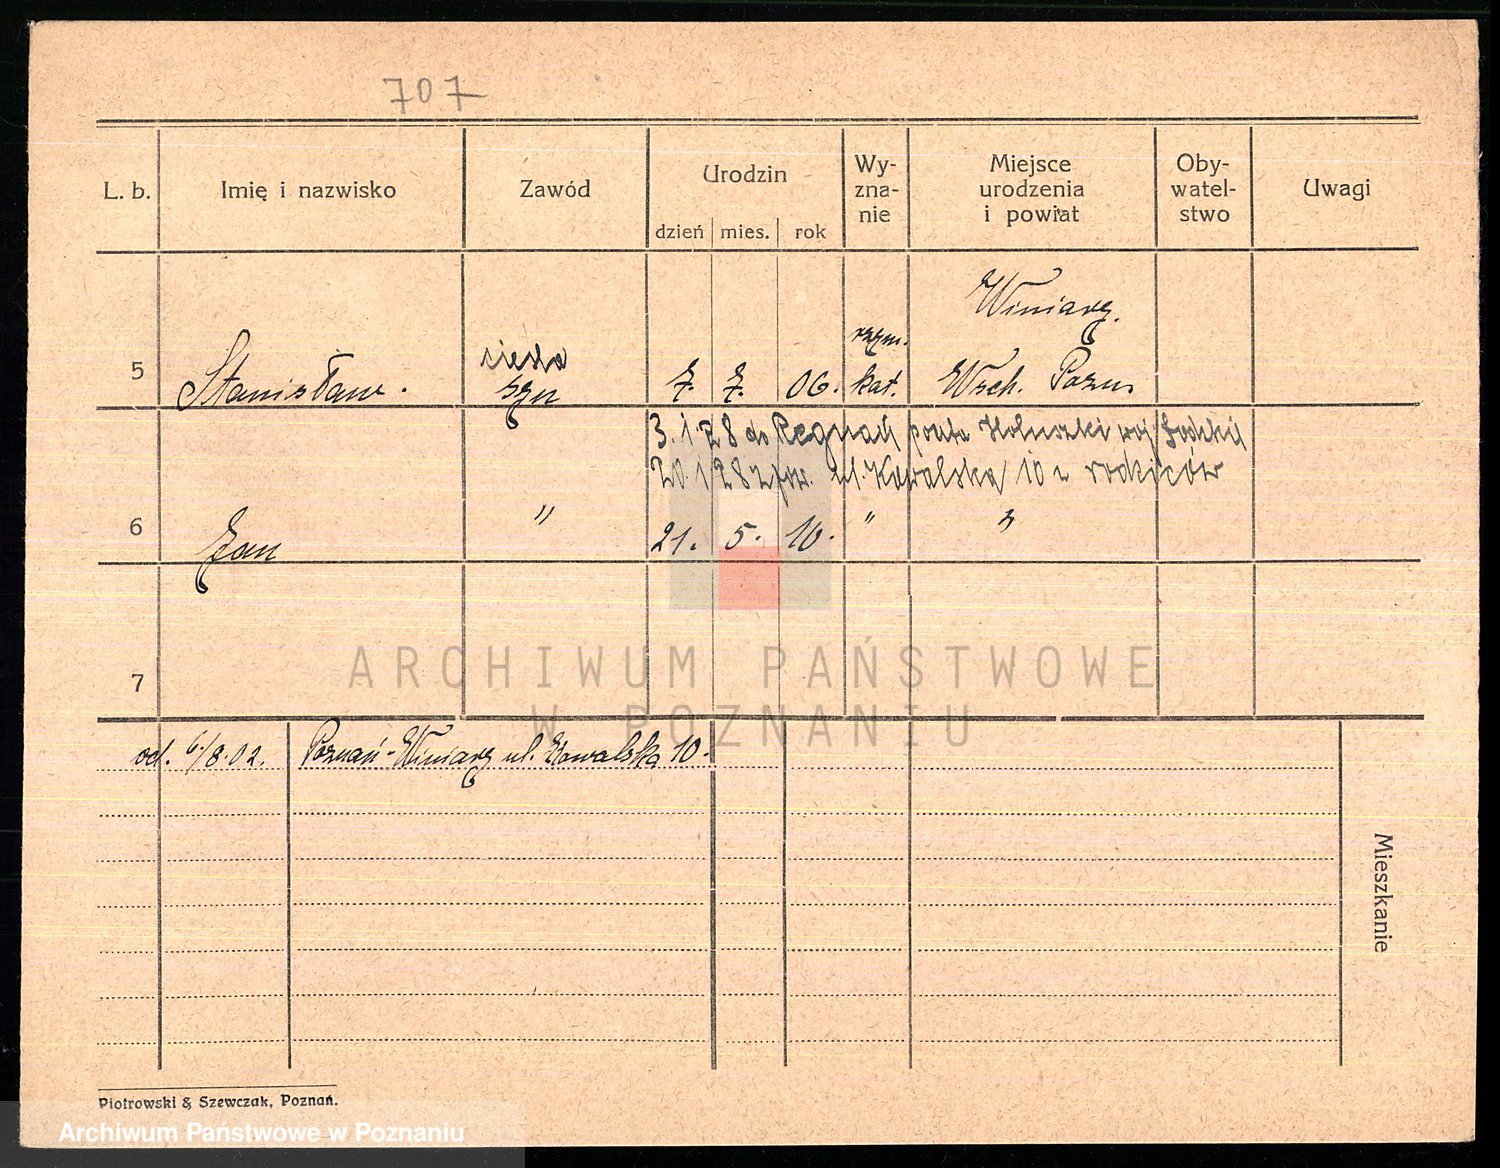 707
L. b. Imię i nazwisko Zawód Urodzin dzień mies. rok Wy-zna-nie Miejsce urodzenia i powiat Oby-watel-stwo Uwagi
Winiary.
ciesla rzym.
5 Stanisław. syn 7. 7. 06. kat. Wsch. Pozn.
3.1.28 do Regnach poczta woj Łodzkij
20.1.28 z pow. ul. Kowalska 10 u rodziców
6 Jan " 21. 5. 10. " "
7
ARCHIWUM PAŃSTWOWE
W POZNANIU
od. 6/8.02. Poznań-Winiary ul. Kowalska 10.
Mieszkanie
Piotrowski & Szewczak, Poznań.
Archiwum Państwowe w Poznaniu